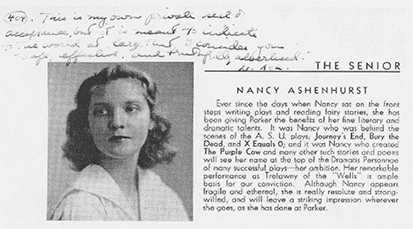 404. This is my own private seal of
acceptance, but it is meant to indicate
"
safe, effective, and truthfully advertised."
THE SENIOR
NANCY ASHENHURST
Ever since the days when Nancy sat on the front
steps writing plays and reading fairy stories, she has
been giving Parker the benefits of her fine literary and
dramatic talents. It was Nancy who was behind the
scenes of the A. S. U. plays, Journey's End, Bury the
Dead, and X Equals O; and it was Nancy who created
The Purple Cow and many other such stories and poems
will see her name at the top of the Dramatis Personnae
of many successful plays—her ambition. Her remarkable
performance as Trelawny of the "Wells" is ample
basis for our conviction. Although Nancy appears
fragile and ethereal, she is really resolute and strong-
willed, and will leave a striking impression wherever
she goes, as she has done at Parker.